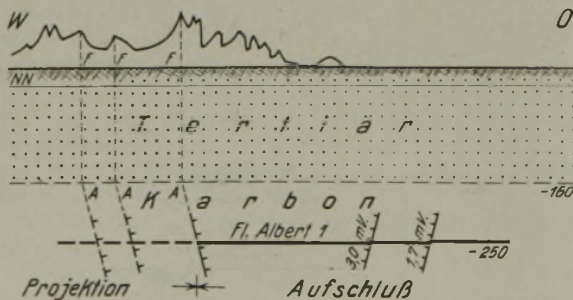 W O
F F F
NN
Tertiär
A A A
Karbon
-160
Fl. Albert 1
3,0 mV.
1,7 mV.
-250
Projektion Aufschluß